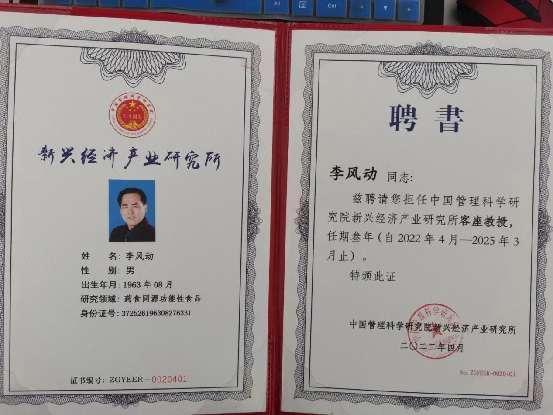 新兴经济产业研究所
姓 名: 李风动
性 别: 男
出生年月: 1963 年 08 月
研究领域: 药食同源功能性食品
身份证号: 372526196308276331
证书编号: ZGYEER-0020401
聘 书
李风动 同志:
兹聘请您担任中国管理科学研
究院新兴经济产业研究所客座教授,
任期叁年(自 2022 年 4 月—2025 年 3
月止)。
特颁此证
中国管理科学研究院新兴经济产业研究所
二〇二二年四月